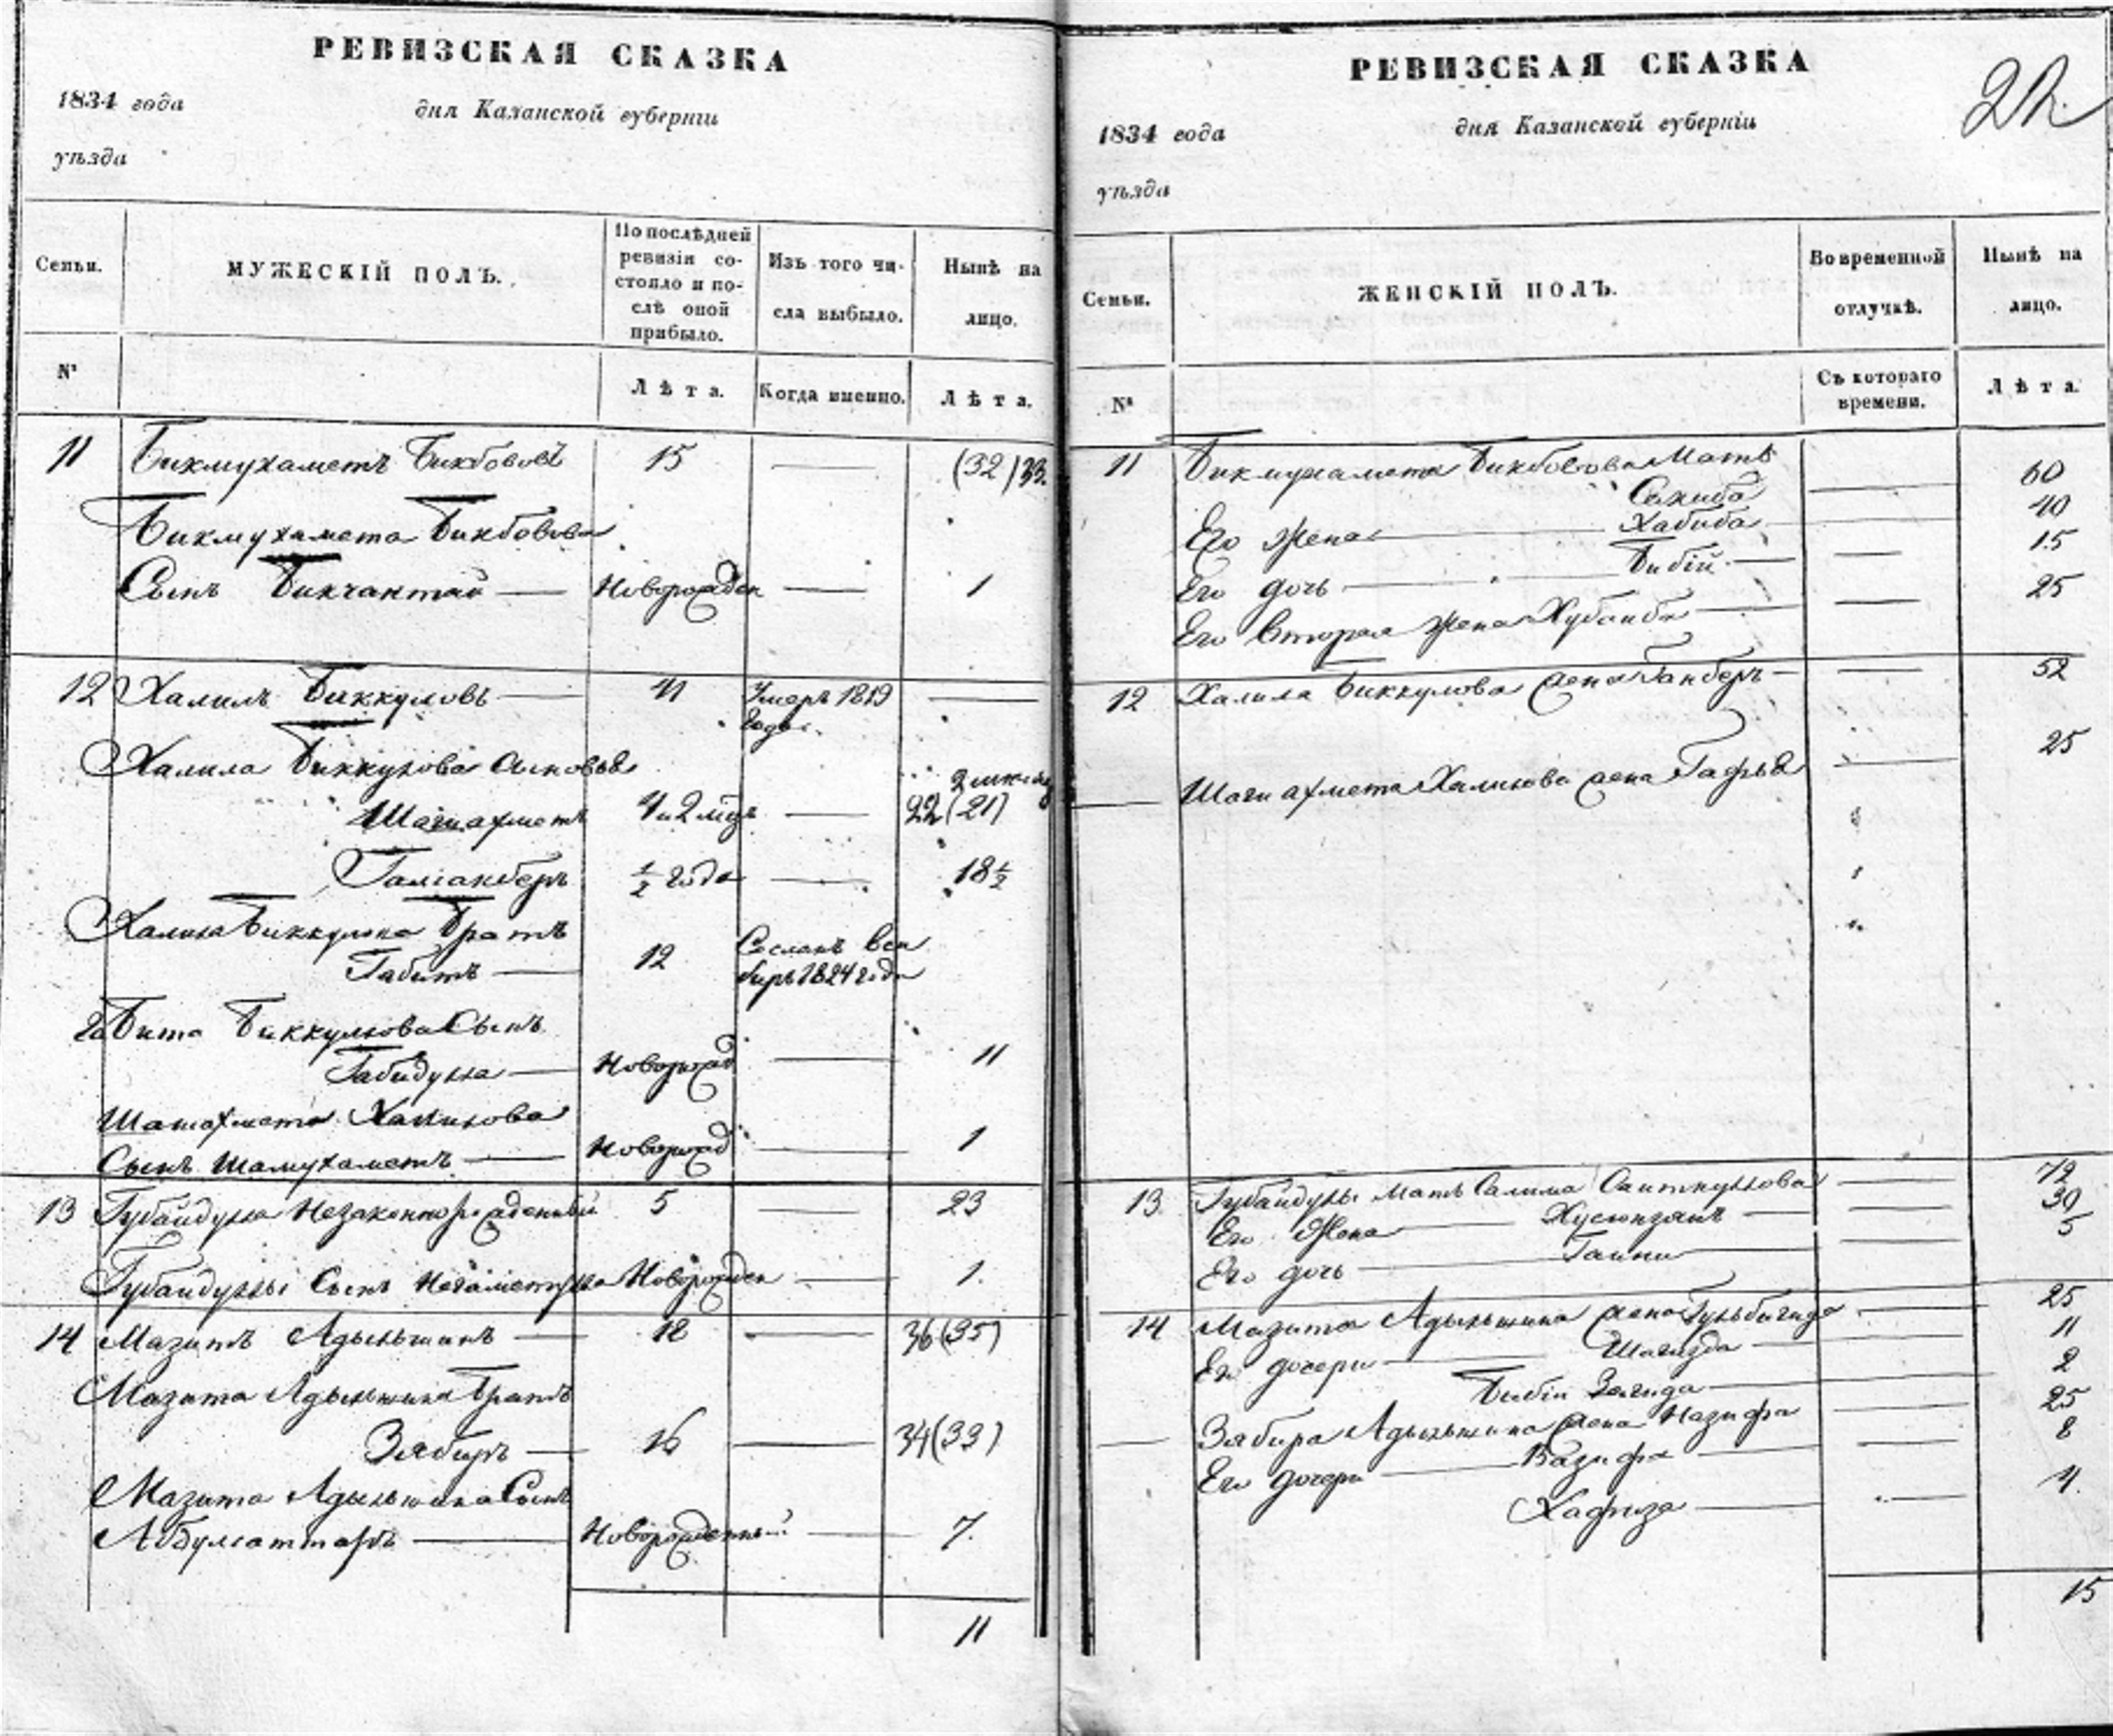 РЕВИЗСКАЯ СКАЗКА
1834 года дня Казанской губерніи
уѣзда
Семьи.
МУЖЕСКІЙ ПОЛЪ.
По послѣдней
ревизіи со-
стояло и по-
слѣ оной
прибыло.
Изъ того чи-
сла выбыло.
Нынѣ на
лицо.
№
Лѣта.
Когда именно.
Лѣта.
11 Бикмухаметъ Бикбововъ 15 — (32) 33.
Бикмухамета Бикбовова
Сынъ Бикчантай — Новорожден — 1
12 Халилъ Биккуловъ — 41 Умеръ 1819 —
года
Халила Биккулова сыновья
Шагиахметъ 4 и 2 мѣс — 22 (21)
Галіакберъ ½ года — 18½
Халила Биккулова Братъ
Габитъ — 12 Сосланъ
1824 года
Габита Биккулова Сынъ
Габидулла — Новорожд — 11
Шагиахмета Халилова
Сынъ Шамухаметъ — Новорожд — 1
13 Губайдулла Незаконнорожденный 5 — 23
Губайдуллы Сынъ Негаметулла Новорожден — 1.
14 Мазитъ Адыльшинъ — 18 — 36 (35)
Мазита Адыльшина Братъ
Зябиръ — 16 — 34 (33)
Мазита Адыльшина Сынъ
Абдулсаттаръ — Новорожденный — 7.
11
РЕВИЗСКАЯ СКАЗКА
22.
1834 года дня Казанской губерніи
уѣзда
Семьи.
ЖЕНСКІЙ ПОЛЪ.
Во временной
отлучкѣ.
Нынѣ на
лицо.
№
Съ котораго
времени.
Лѣта.
11 Бикмухамета Бикбовова Мать
Сахиба — 60
Его Жена — Хабиба — 40
Его дочь — Бибій — 15
Его вторая жена Хубаиба — 25
12 Халила Биккулова жена Ганберъ — 52
Шагиахмета Халилова жена Гафья — 25
13 Губайдуллы мать Салима Саиткулова — 72
Его Жена — Хусюпзянъ — 30
Его дочь — Гайни — 5
14 Мазита Адыльшина жена Гульбагида — 25
Его дочери — Шагида — 11
Бибіи Загида — 2
Зябира Адыльшина жена Назифа — 25
Его дочери — Вазифа — 8
Хафиза — 4.
15